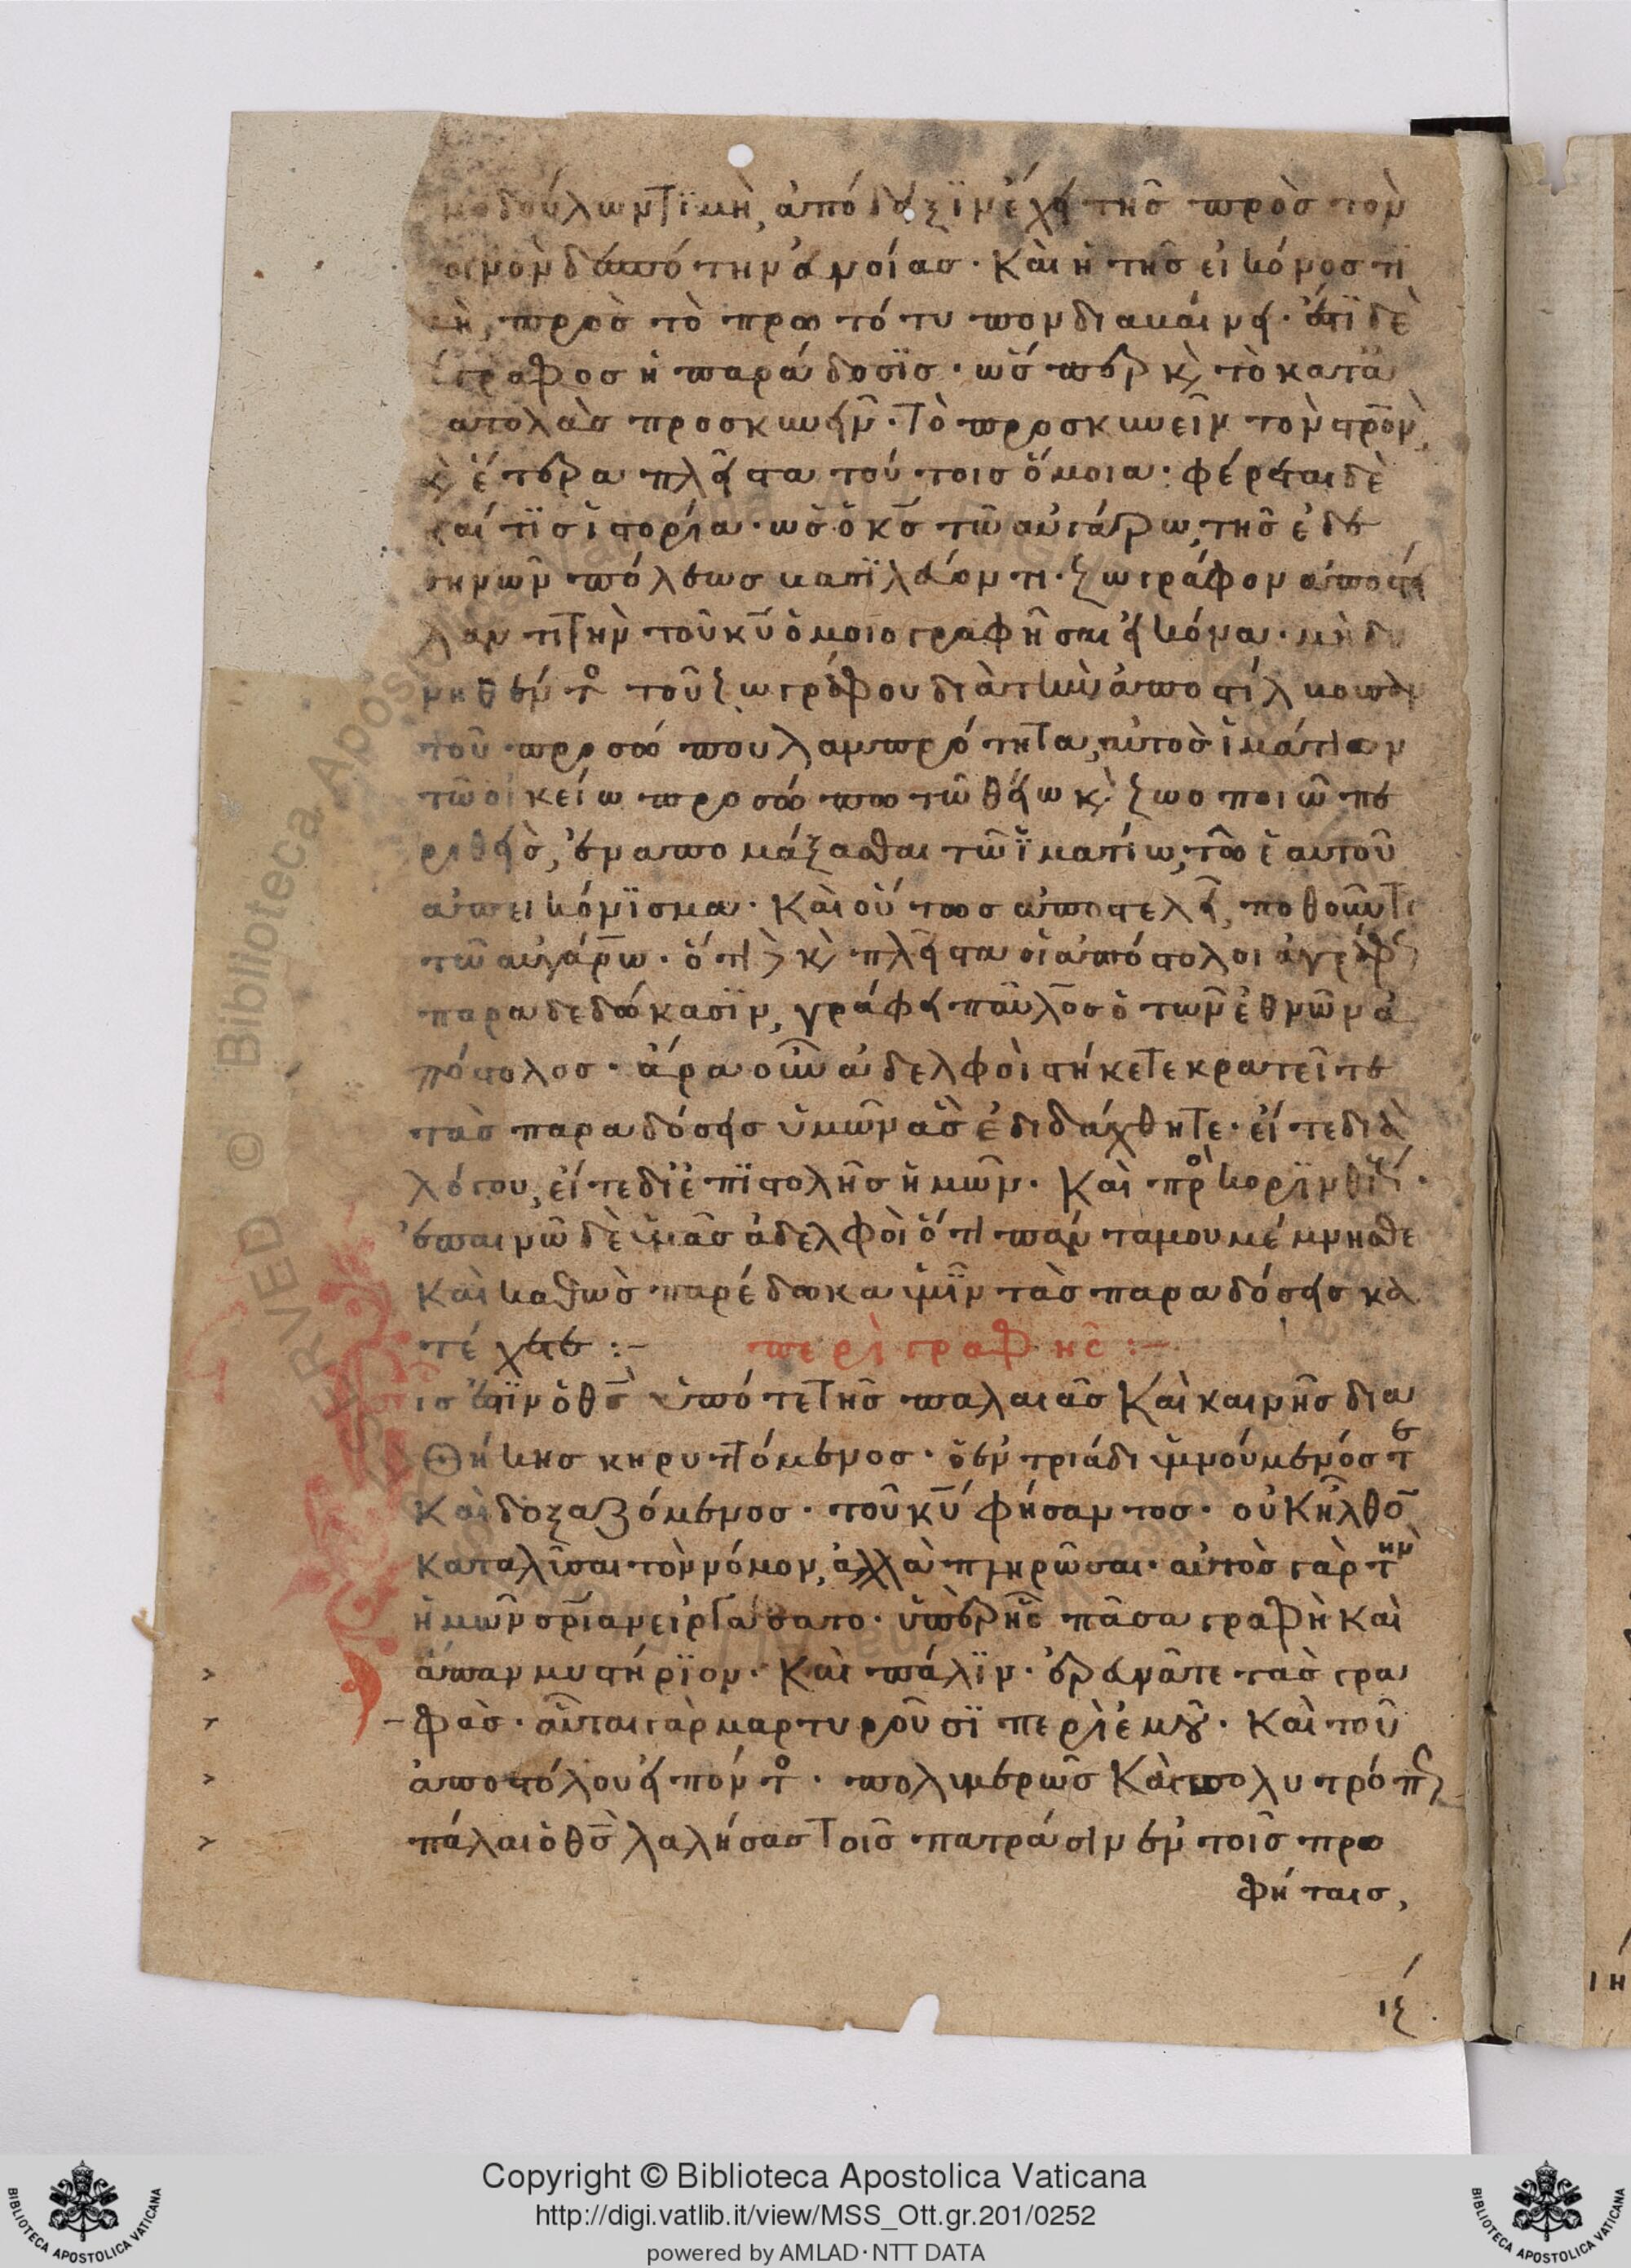 μοδούλων τϊμὴ, ἀπόδειξϊν ἔχει τῆς πρὸς τὸν
οινὸν δεσπότην ἐννοίας· Καὶ ἡ τῆς εἰκόνος τι
μὴ, πρὸς τὸ πρωτότυπον διαβαίνει· ἔστϊ δὲ
ἄγραφος ἡ παράδοσϊς· ὥσπερ κ(αὶ) τὸ κατὰ
ατολὰς προσκυνεῖν· Τὸ προσκυνεῖν τὸν στ(αυ)ρὸν,
κ(αὶ) ἕτερα πλεῖστα τούτοις ὅμοια· φέρεται δὲ
καί τϊς ἱστορία· ὡς ὁ κ̅ς̅ τῶ αὐγάρω, τῆς ἐδε
σηνῶν πόλεως βασϊλεύοντι· ζωγράφον ἀποστεί
λαντι Τὴν τοῦ κ̅υ̅ ὁμοιογραφῆσαι εἰκόνα· μὴ δυ
νηθέντο(ς) τοῦ ζωγράφου διὰ τὴν ἀποστίλβουσαν
τοῦ προσώπου λαμπρότητα, αὐτὸς ἱμάτιον
τῶ οἰκείω προσώπω τῶ θείω κ(αὶ) ζωοποιῶ πε
ριθεὶς, ἐναπομάξασθαι τῶ ἱματίω, τὸ ἑαυτοῦ
ἀπεικόνϊσμα· Καὶ οὕτως ἀποστελεῖ, ποθοῦντι
τῶ αὐγάρω· ὅτι δὲ κ(αὶ) πλεῖστα οἱ ἀπόστολοι ἀγράφ(ως)
παραδεδώκασϊν, γράφει παῦλος ὁ τῶν ἐθνῶν ἀ
πόστολος· ἄρα οὖν ἀδελφοὶ στήκετε κρατεῖτε
τὰς παραδόσεις ὑμῶν ἃς ἐδιδάχθητε· εἴτε διὰ
λόγου, εἴτε δι' ἐπϊστολῆς ἡμῶν· Καὶ πρὸ(ς) κορϊνθί(ους)·
ἐπαινῶ δὲ ὑμᾶς ἀδελφοὶ ὅτι πάντα μου μέμνησθε
Καὶ καθὼς παρέδωκα ὑμῖν τὰς παραδόσεις κα
τέχετε :–     περὶ γραφῆς :–
ις ἐστϊν ὁ θ̅ς̅ ὑπό τε Τῆς παλαιᾶς Καὶ καινῆς δια
Θήκης κηρυττόμενος· ὁ ἐν τριάδι ὑμνούμενός τε
Καὶ δοξαζόμενος· τοῦ κ̅υ̅ φήσαντος· οὐκ ἦλθο(ν)
καταλῦσαι τὸν νόμον, ἀλλὰ πληρῶσαι· αὐτὸς γὰρ τὴν
ἡμῶν σ(ωτη)ρίαν εἰργάσατο· ὑπὲρ ἧς πᾶσα γραφὴ Καὶ
ἅπαν μυστήρϊον· Καὶ πάλϊν· ἐρευνᾶτε τὰς γρα
φὰς· αὗται γὰρ μαρτυροῦσϊ περὶ ἐμοῦ· Καὶ τοῦ
ἀποστόλου εἰπόντο(ς)· πολυμερῶς Καὶ πολυτρόπ(ως)
πάλαι ὁ θ̅ς̅ λαλήσας Τοῖς πατράσιν ἐν τοῖς προ
φήταις,
ιζ
Copyright © Biblioteca Apostolica Vaticana
http://digi.vatlib.it/view/MSS_Ott.gr.201/0252
powered by AMLAD·NTT DATA
BIBLIOTECA APOSTOLICA VATICANA
BIBLIOTECA APOSTOLICA VATICANA